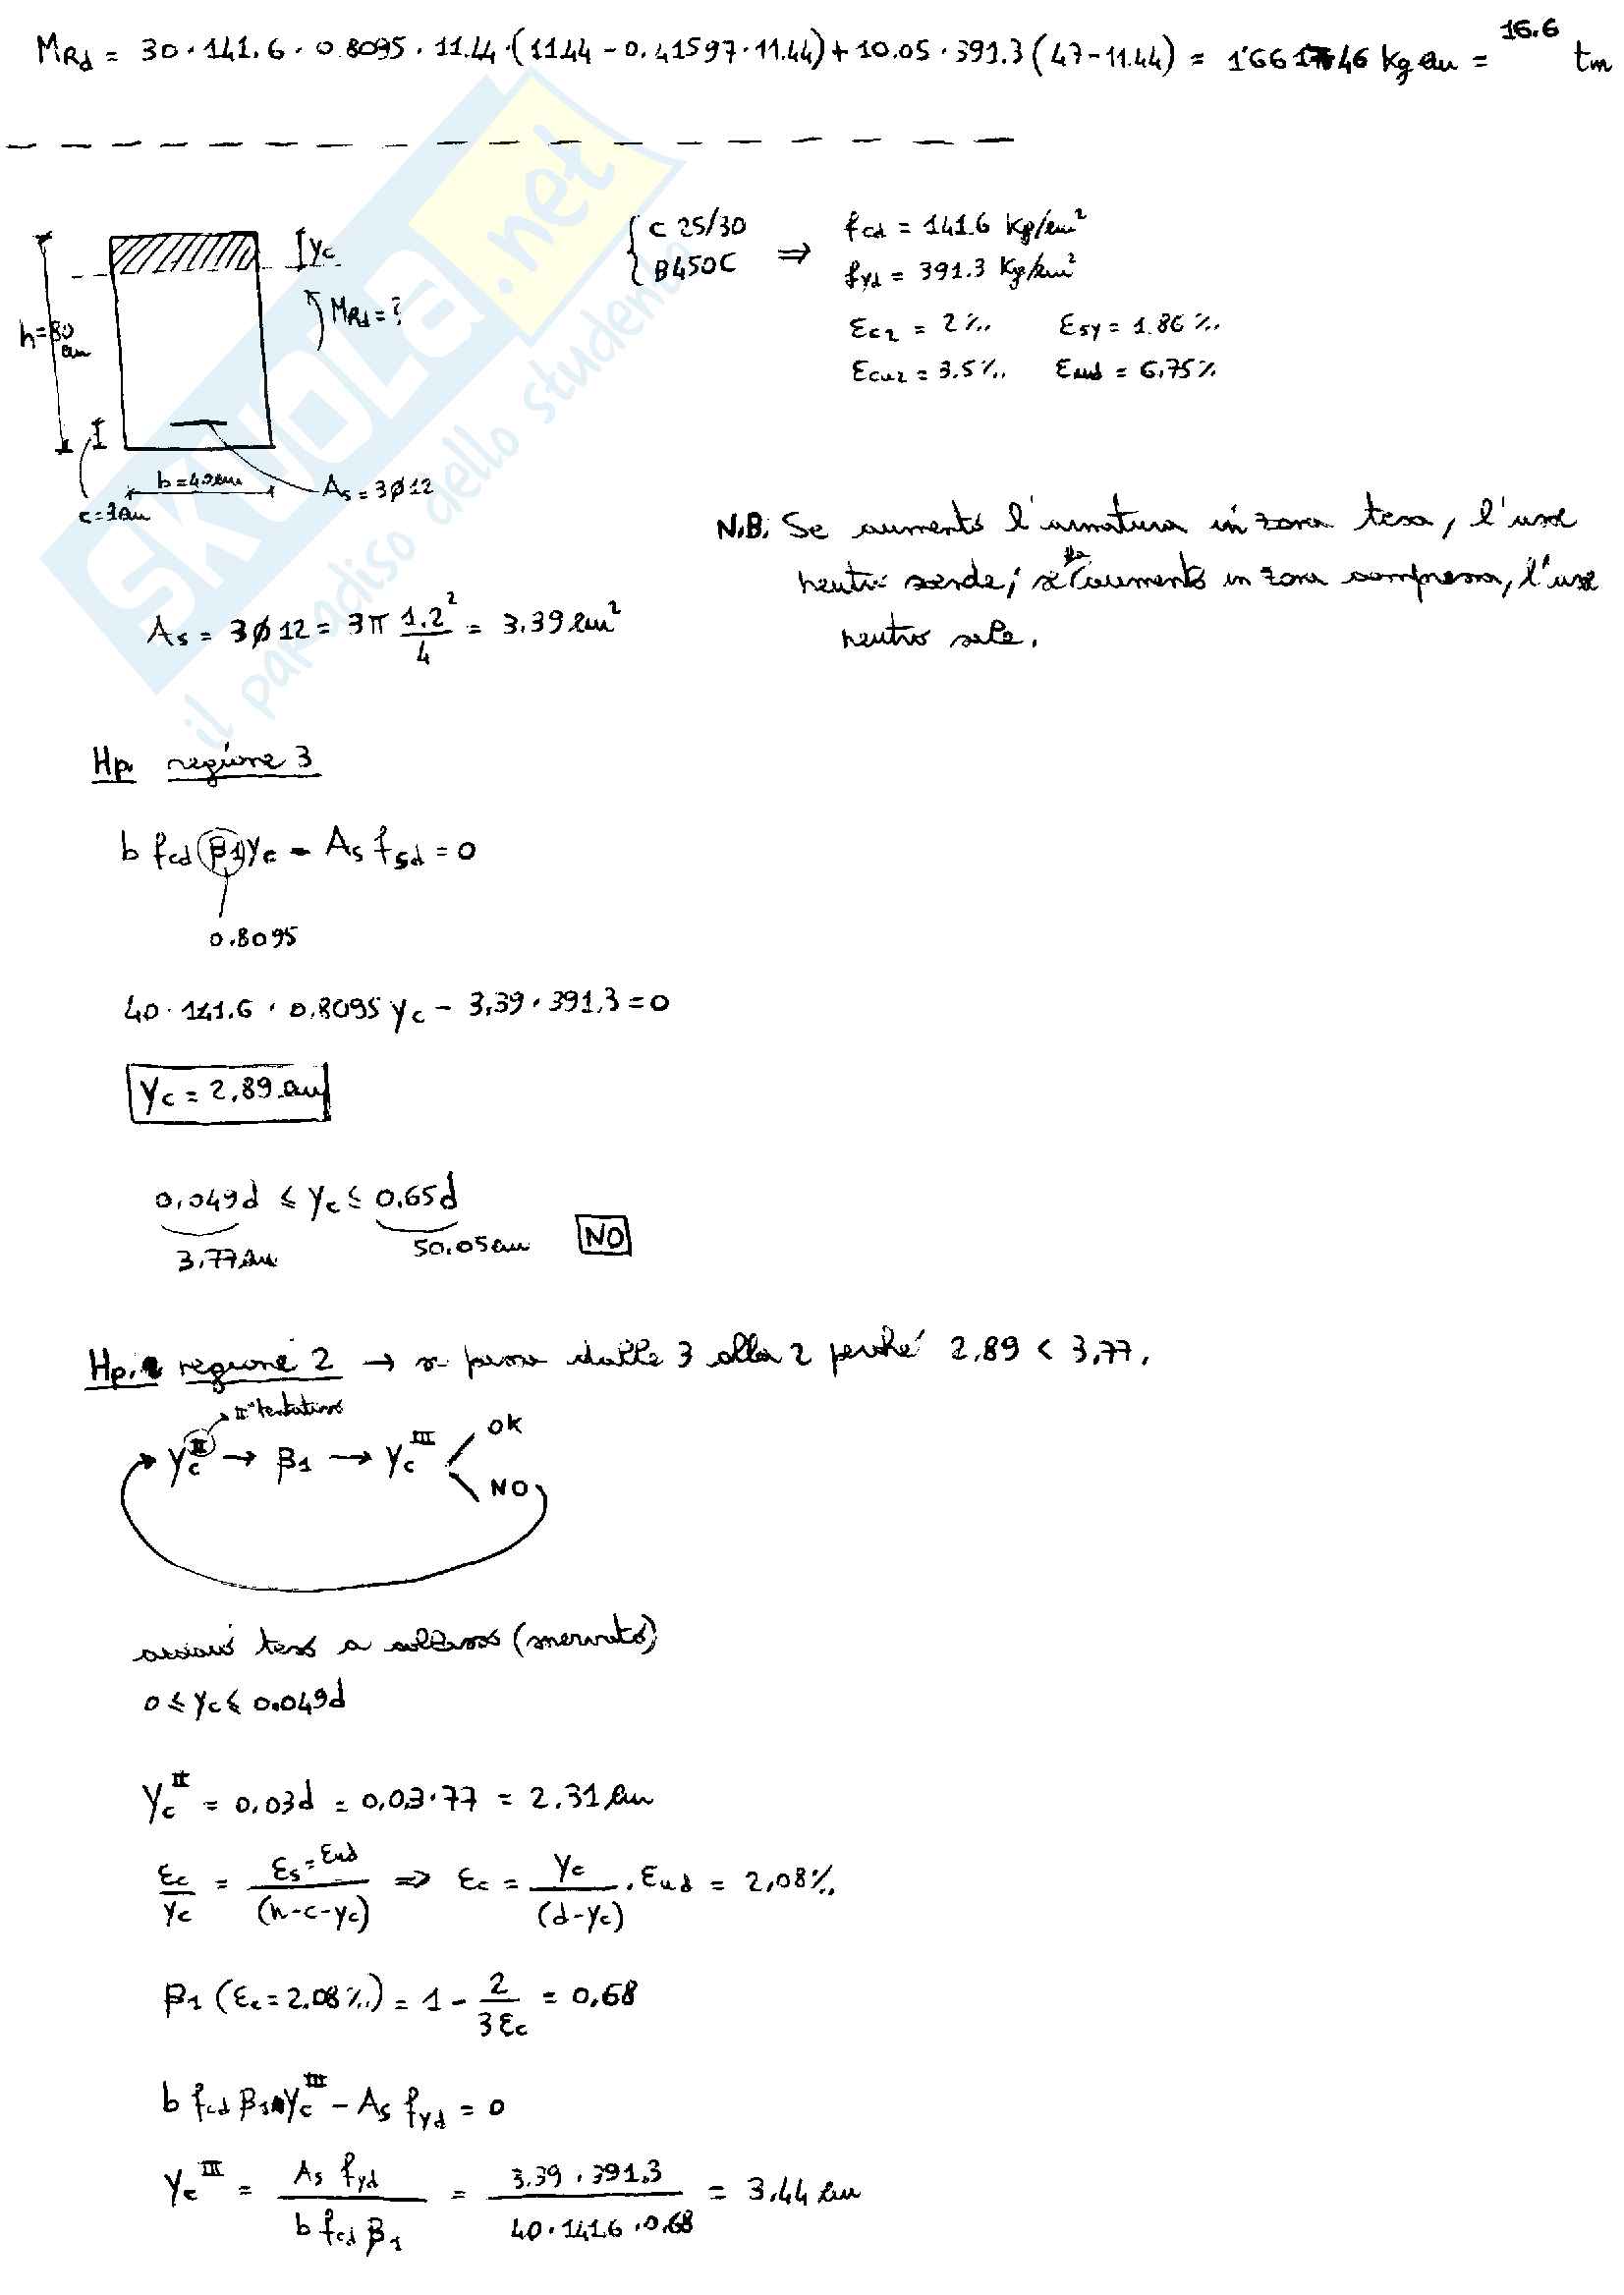 M_Rd = 30·141.6·0.8095·11.44·(11.44-0.41597·11.44)+10.05·391.3(47-11.44) = kg cm = 16.6 tm
h=80 cm
yc
M_Rd = ?
b=40cm
c=3cm
As = 3ø12
{ C 25/30
B450C
⇒ fcd = 141.6 Kg/cm²
fyd = 391.3 Kg/cm²
εc2 = 2‰ εsy = 1.86‰
εcu2 = 3.5‰ εud = 6.75%
N.B. Se aumento l'armatura in zona tesa, l'asse
neutro scende; se la aumento in zona compressa, l'asse
neutro sale.
As = 3ø12 = 3π 1.2²/4 = 3.39 cm²
Hp. regione 3
b fcd β1 yc - As fsd = 0
0.8095
40·141.6·0.8095 yc - 3,39·391,3 = 0
yc = 2,89 cm
0,049d ≤ yc ≤ 0.65d
3,77cm 50.05cm NO
Hp. regione 2 → si passa dalla 3 alla 2 perché 2,89 < 3,77.
II° tentativo
yc^II → β1 → yc^III OK
NO
acciaio teso a rottura (snervato)
0 ≤ yc ≤ 0.049d
yc^II = 0,03d = 0,03·77 = 2.31 cm
εc/yc = εs=εud/(h-c-yc) ⇒ εc = yc/(d-yc) · εud = 2,08‰
β1 (εc = 2.08‰) = 1 - 2/3εc = 0,68
b fcd β1 yc^III - As fyd = 0
yc^III = As fyd/b fcd β1 = 3.39·391.3/40·141.6·0,68 = 3,44 cm
SKUOLA.net
il paradiso dello studente